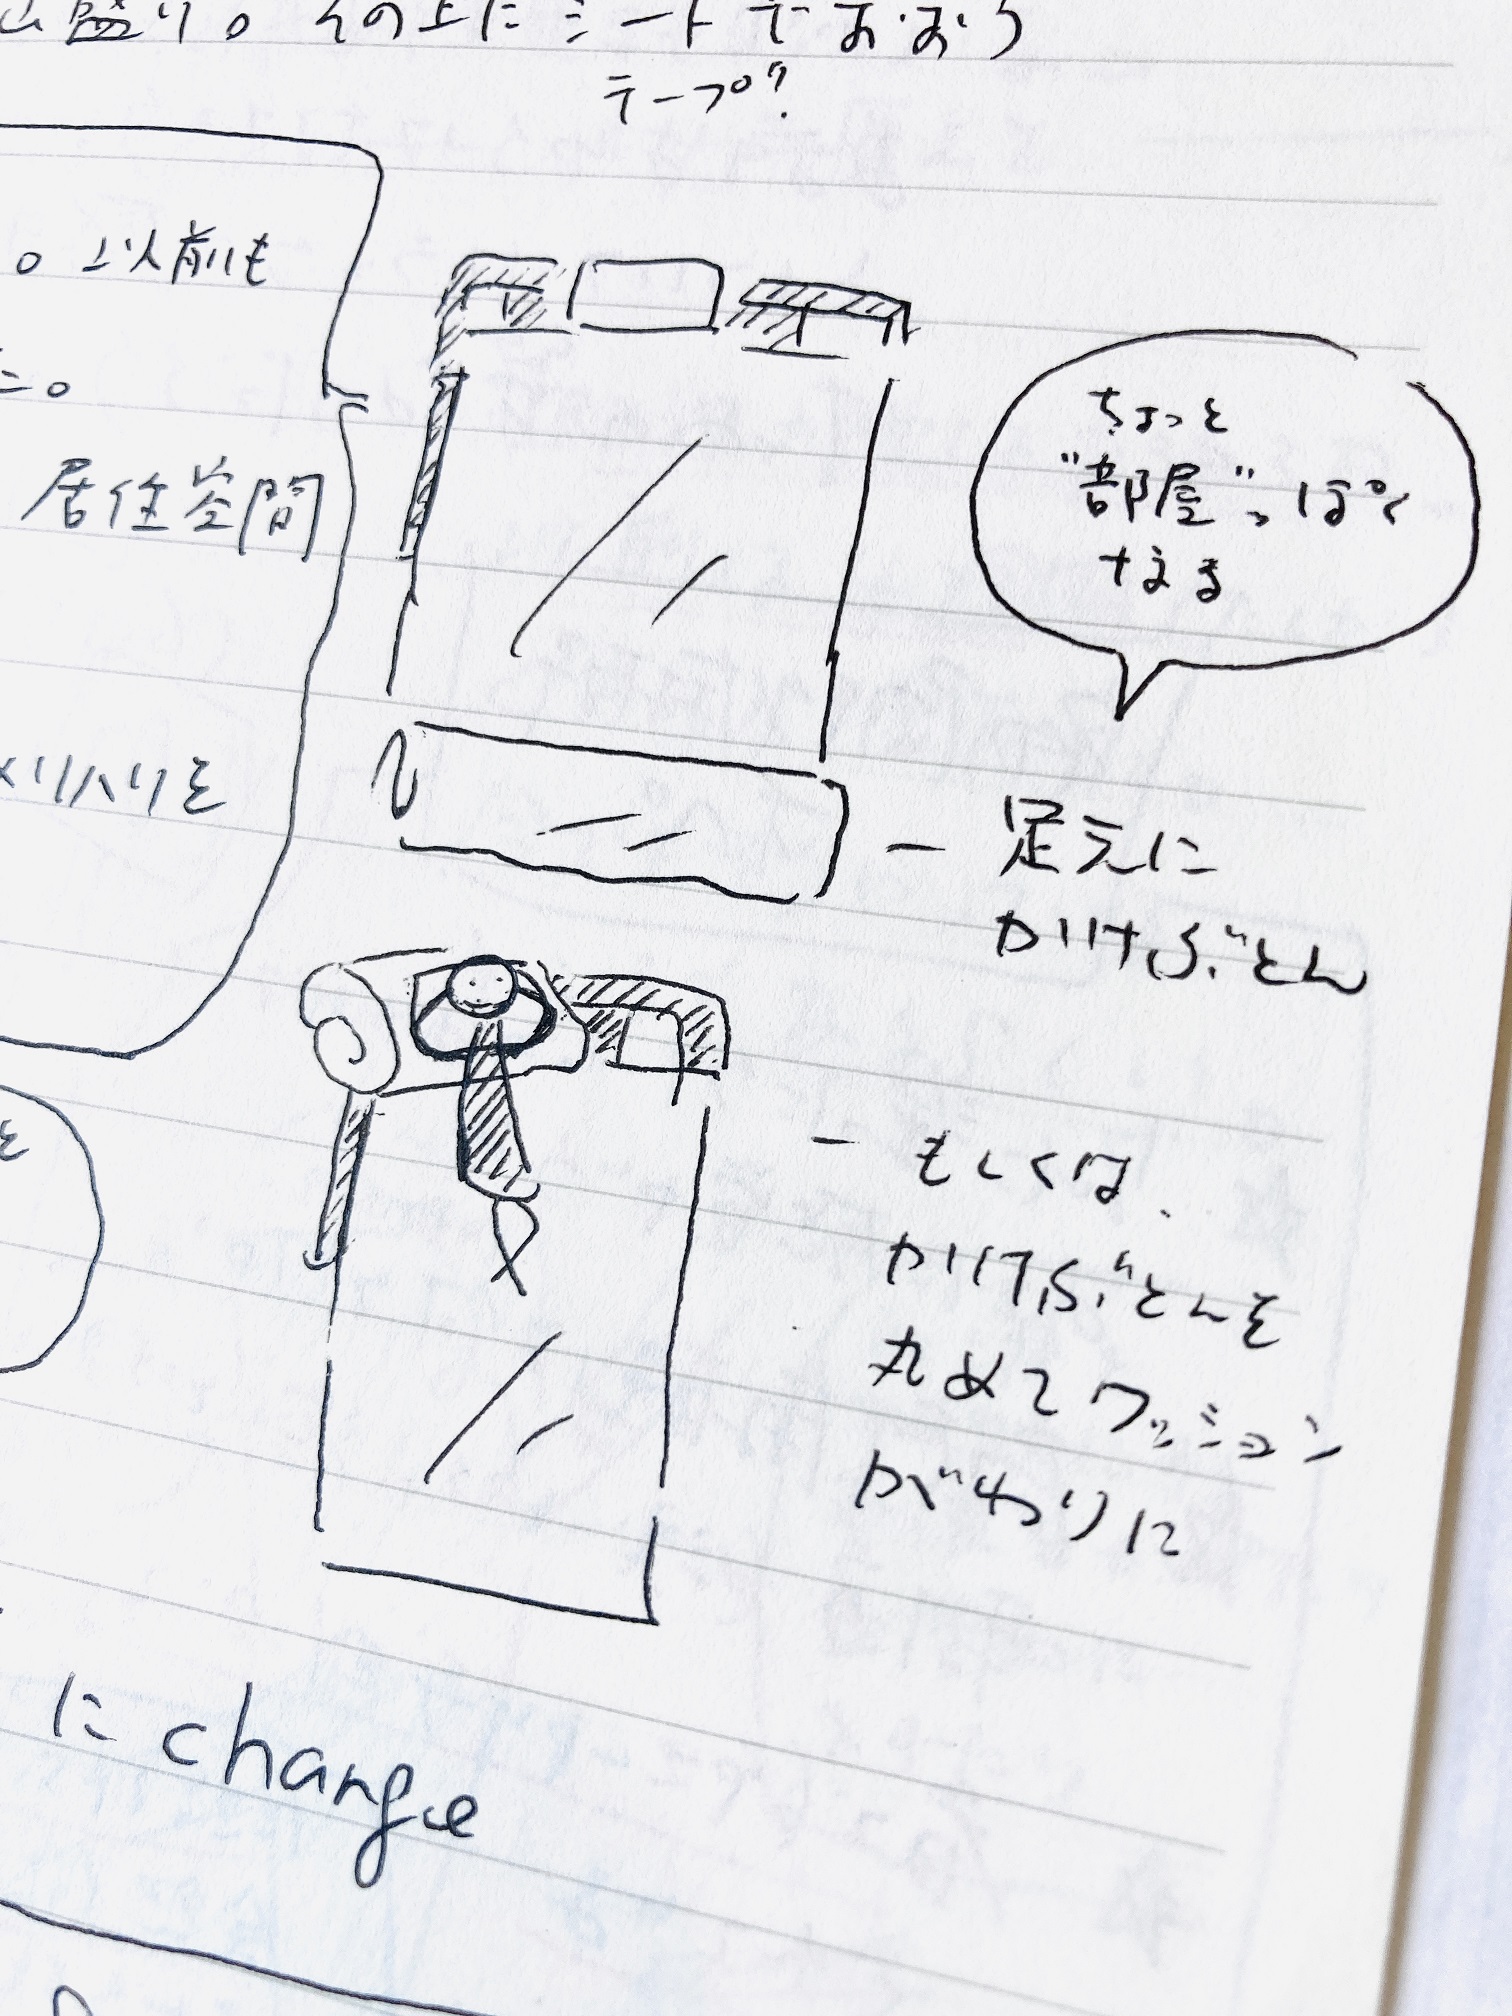 盛り。その上にシートでおおう
テープ?
。以前も
た。
居住空間
メリハリを
ちょっと
"部屋"っぽく
なる
- 足元に
かけぶとん
- もしくは、
かけぶとんを
丸めてクッション
がわりに
を
にchange